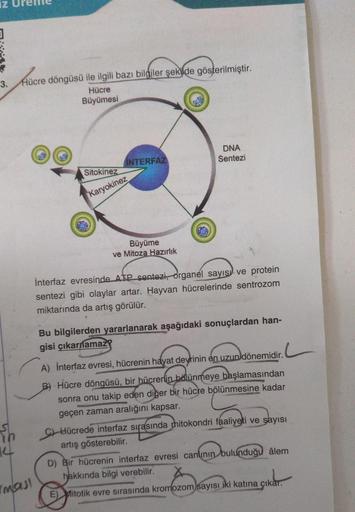 iz Üreme
3. Hücre döngüsü ile ilgili bazı bilgiler şekilde gösterilmiştir.
Hücre
Büyümesi
DNA
Sentezi
İNTERFAZ
Sitokinez
Karyokinez
Büyüme
ve Mitoza Hazırlık
İnterfaz evresinde ATP sentezi, organel sayısı ve protein
sentezi gibi olaylar artar. Hayvan hücrelerinde sentrozom
miktarında da artış görülür.
Bu bilgilerden yararlanarak aşağıdaki sonuçlardan han-
gisi çıkarılamaz?
A) İnterfaz evresi, hücrenin hayat devrinin en uzun dönemidir.
B) Hücre döngüsü, bir hücrenin bölünmeye başlamasından
sonra onu takip eden diğer bir hücre bölünmesine kadar
geçen zaman aralığını kapsar.
C) Hücrede interfaz sırasında mitokondri faaliyeti ve sayısı
artış gösterebilir.
D) Bir hücrenin interfaz evresi canlının bulunduğu âlem
hakkında bilgi verebilir.
E) Mitotik evre sırasında kromozom sayısı iki katına çıkar.